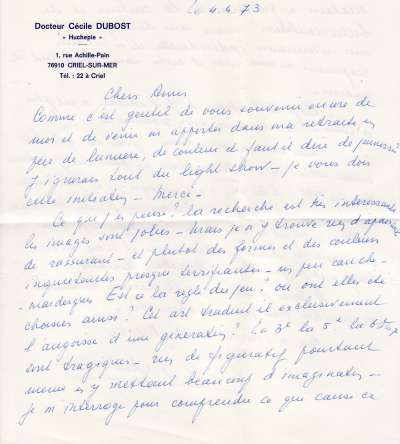 Le 4.4.73
Docteur Cécile DUBOST
« Huchepie »
1, rue Achille-Pain
76910 CRIEL-SUR-MER
Tél. : 22 à Criel
Chers Amis
Comme c'est gentil de vous souvenir encore de
moi et de venir m'apporter dans ma retraite un
peu de lumière, de couleur et faut il dire de jeunesse?
J'ignorais tout du light show - je vous dois
cette initiation - Merci -
Ce que j'en pense? la recherche est très intéressante
les images sont jolies - mais je n'y trouve rien d'apaisant
de rassurant - et plutôt des formes et des couleurs
inquiétantes presque terrifiantes - un peu cauche-
-mardesques Est ce la règle du jeu? ou ont elles été
choisies ainsi? Cet art traduit il exclusivement
l'angoisse d'une génération? La 3e la 5e la 6e
sont tragiques - rien de figuratif pourtant
même en y mettant beaucoup d'imagination -
je m'interroge pour comprendre ce que cause ce